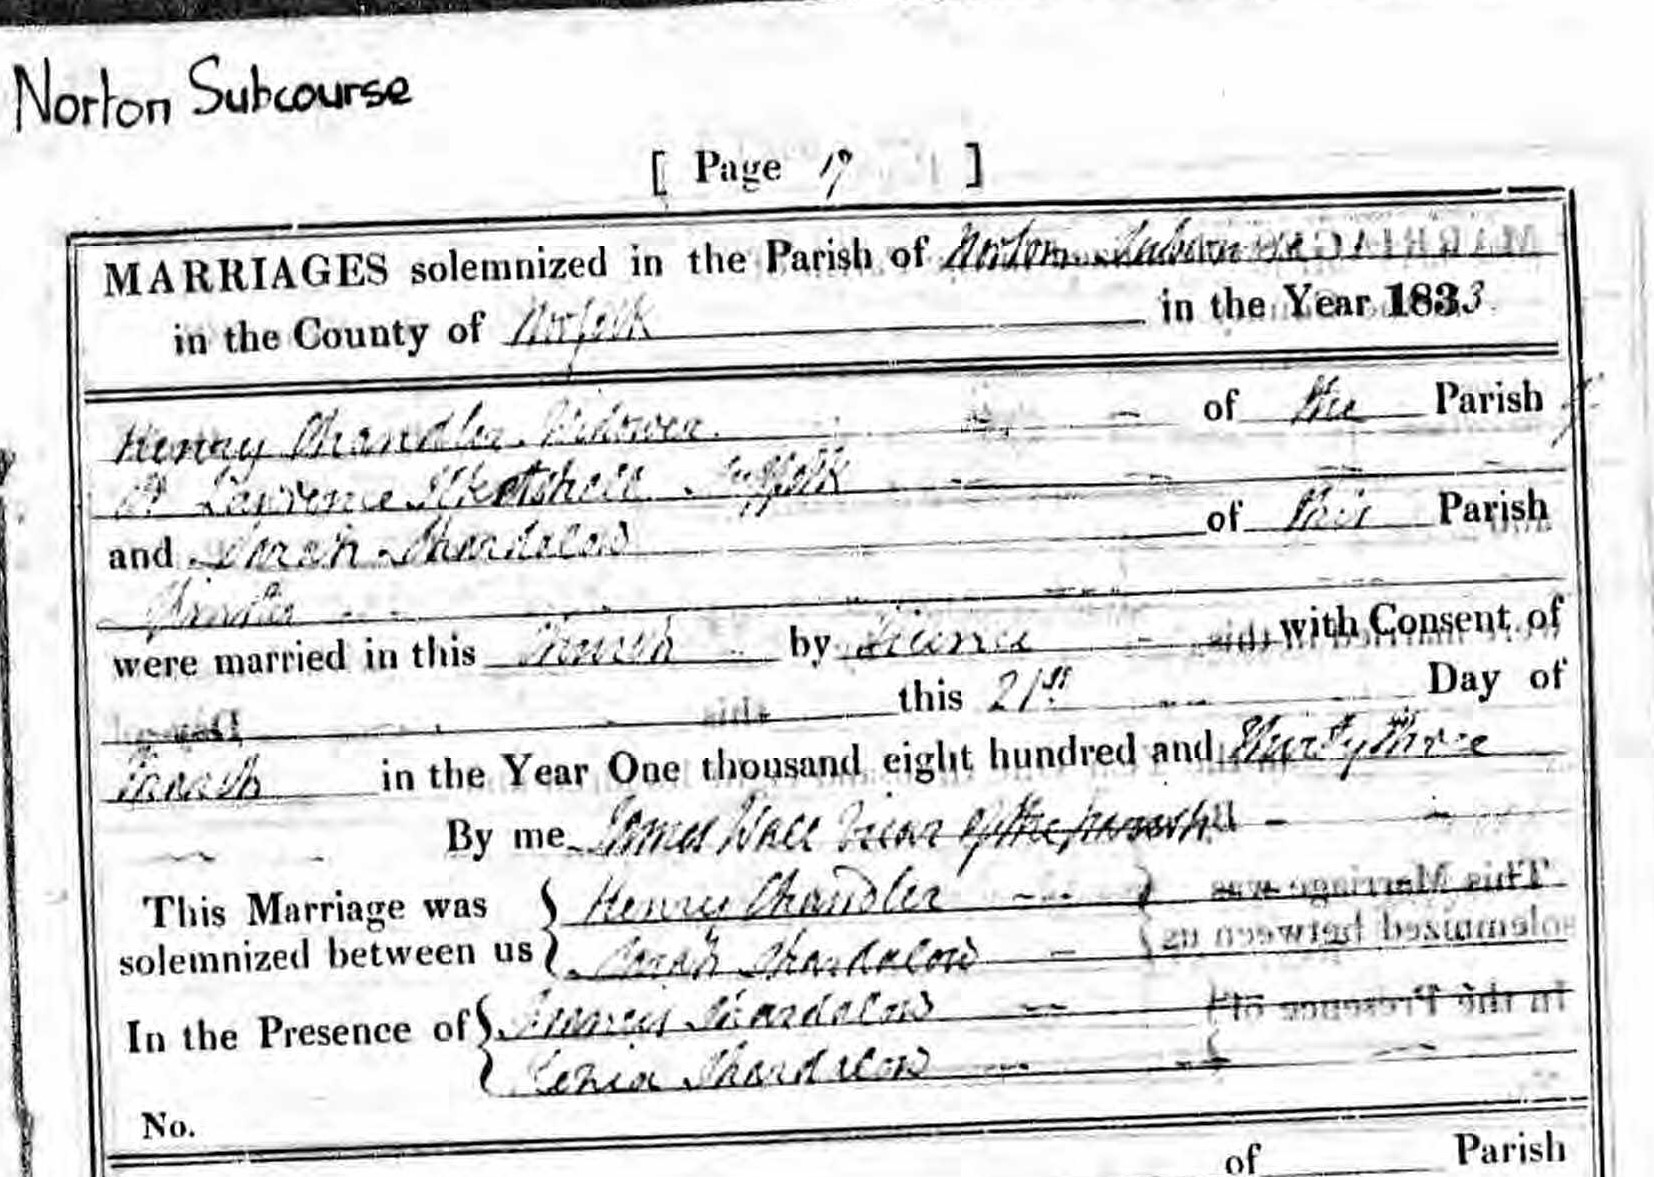 Norton Subcourse
[ Page 17 ]
MARRIAGES solemnized in the Parish of Norton Subcourse
in the County of Norfolk in the Year 1833
Henry Chandler Widower of the Parish of
St Lawrence Ilketshall Suffolk
and Sarah Shardalow of this Parish
Spinster
were married in this Church by Licence with Consent of
this 21st Day of
March in the Year One thousand eight hundred and thirty three
By me James Wall Vicar of the parish
This Marriage was solemnized between us { Henry Chandler
Sarah Shardalow
In the Presence of { Francis Shardalow
Shardalow
No.
of Parish